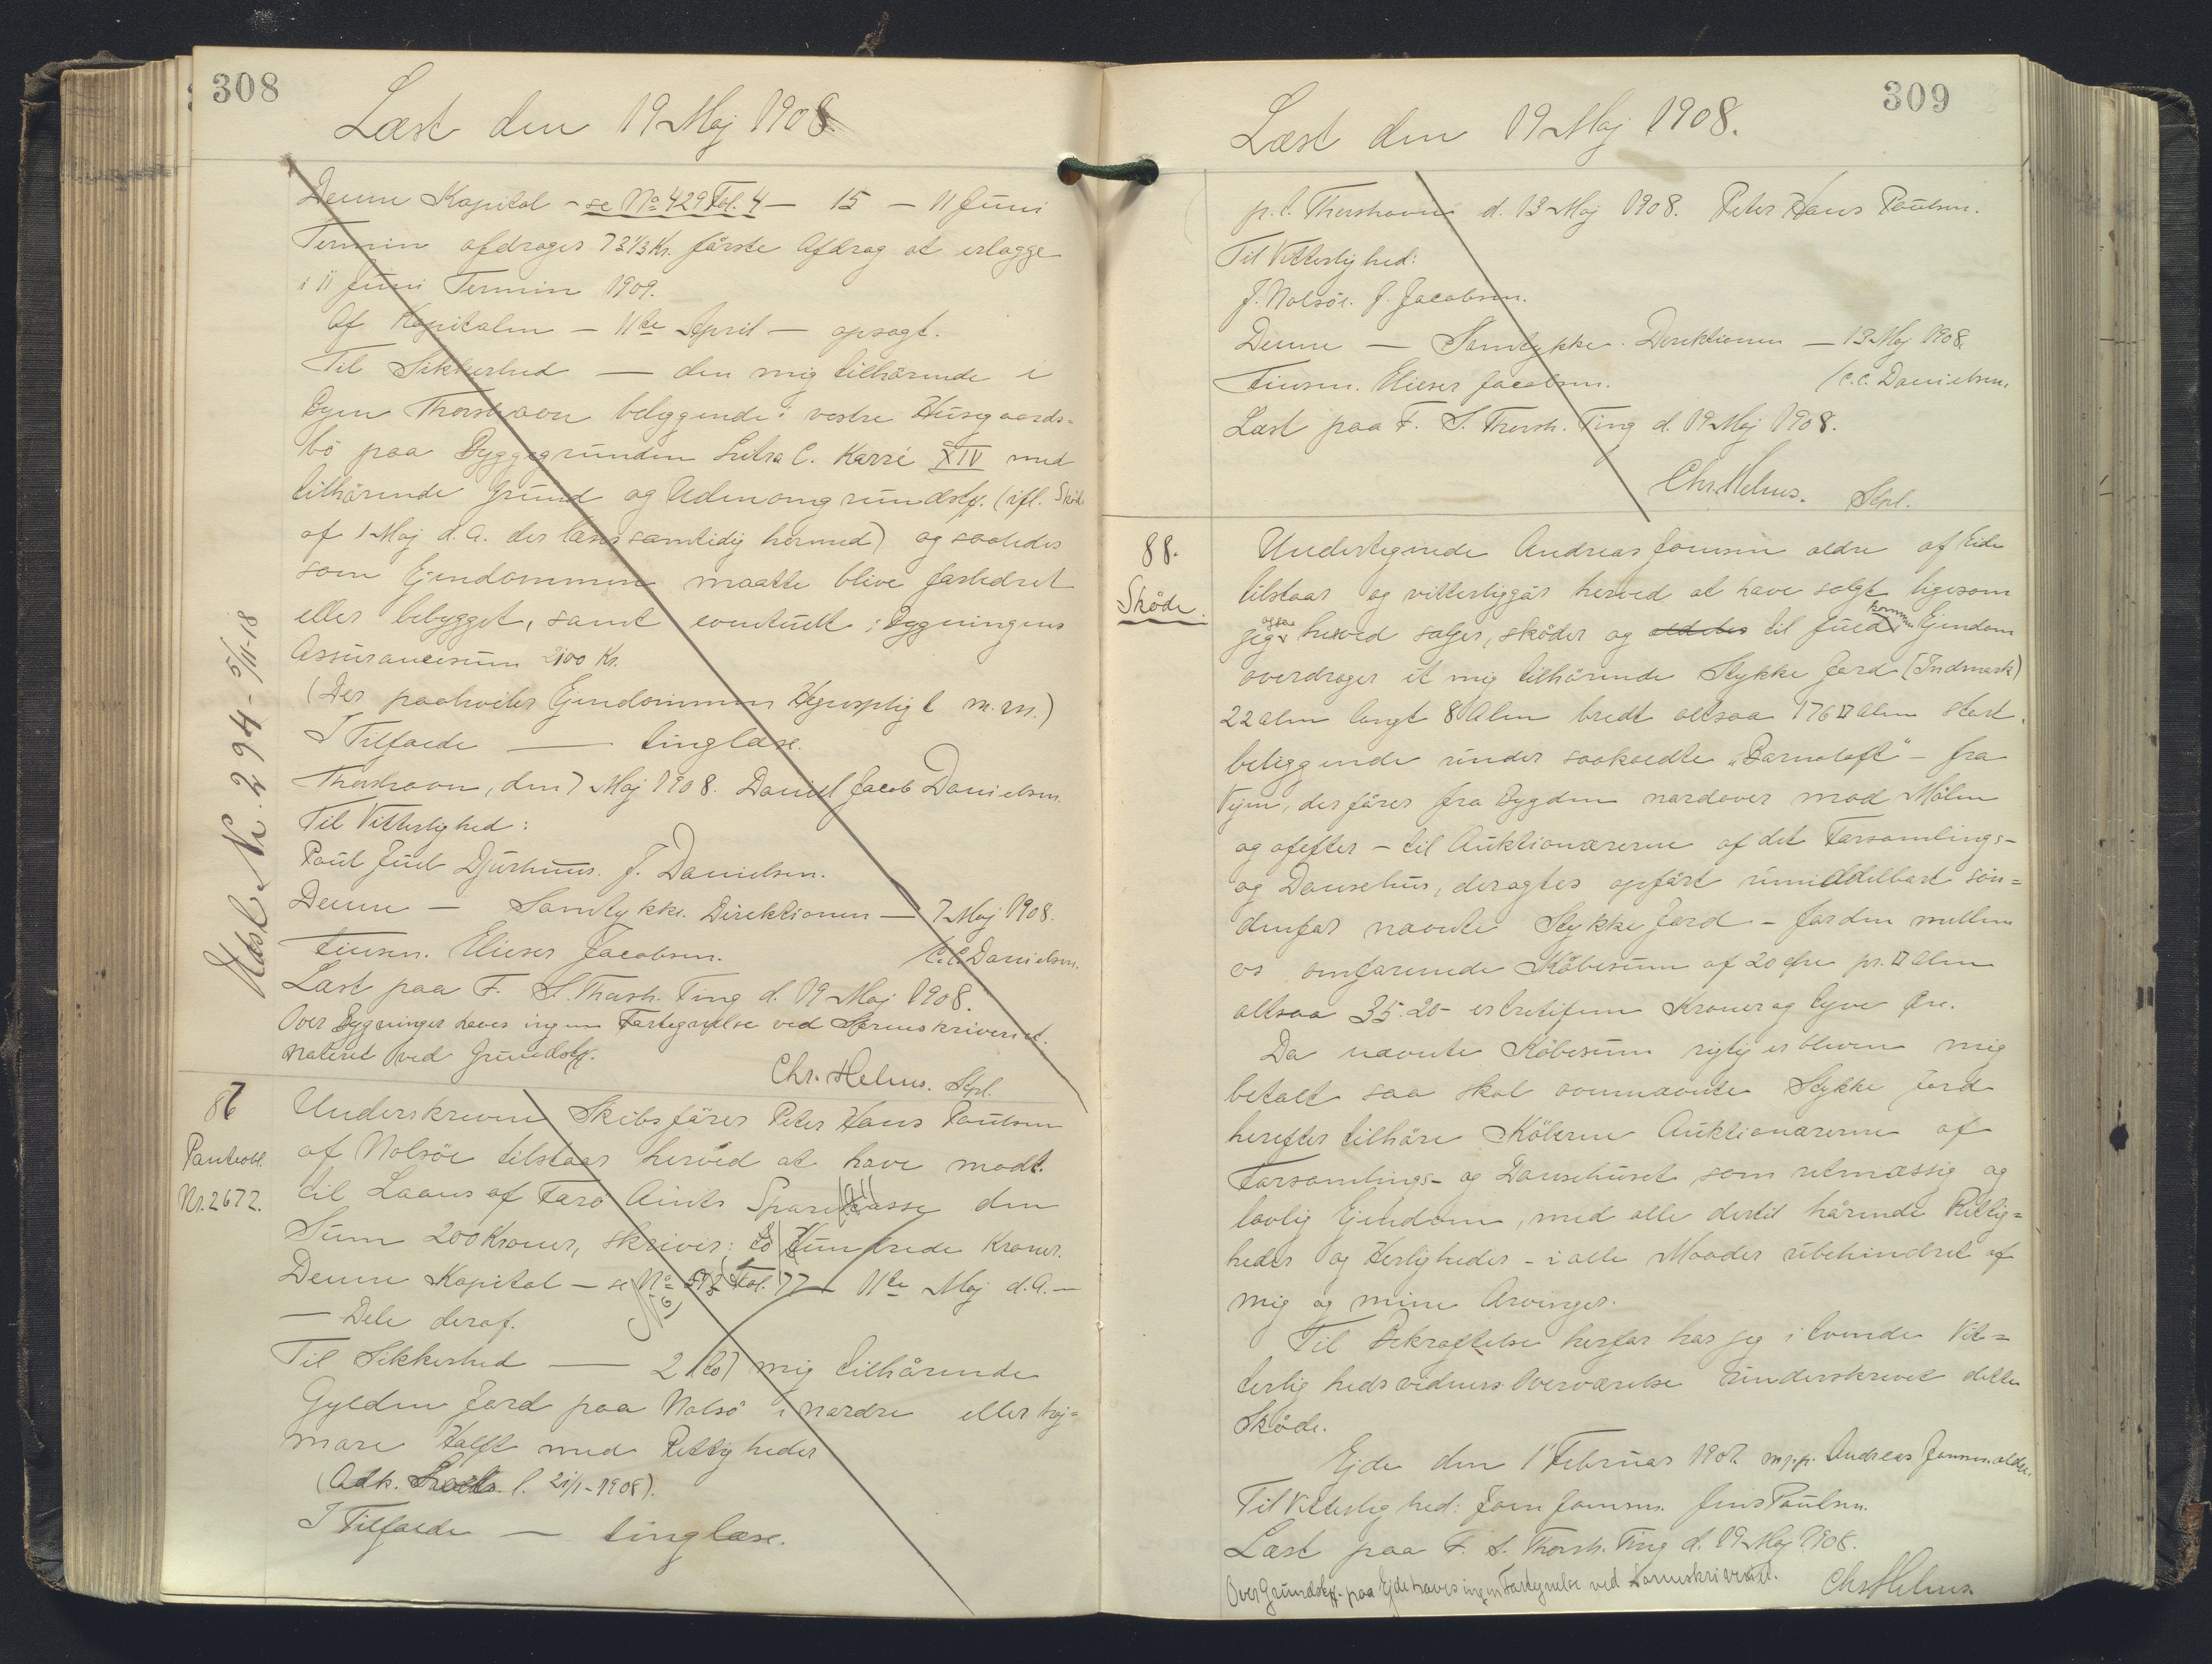 308
Læst den 19 Maj 1908.
Denne Kapital - se No 429 Fol. 4 - 15 - 11 Juni
Termin afdrages 73 1/3 Kr. første Afdrag at erlægge
i 11 Juni Termin 1909.
Af Kapitalen - 11te April - opsagt.
Til Sikkerhed - den mig tilhörende i
Byen Thorshavn beliggende i vestre Husegaards-
bö paa Byggegrunden Litra C. Karré XIV med
tilhörende Grund og Udenomgrundstk. (ifl. Sköde
af 1 Maj d.A. der læses samtidig hermed) og saaledes
som Ejendommen maatte blive forbedret
eller bebygget, samt eventuelt: Bygningens
Assurancesum 2100 Kr.
(Der paahviler Ejendommen Hegnspligt m.m.)
I Tilfælde - tinglæse.
Thorshavn, den 7 Maj 1908. Daniel Jacob Danielsen.
Til Vitterlighed:
Poul Juul Djurhuus. J. Danielsen.
Denne - Samtykke. Direktionen - 7 Maj 1908.
Finsen. Elieser Jacobsen. / C.C. Danielsen.
Læst paa F. S. Thorsh. Ting d. 19 Maj 1908.
Over Bygninger haves ingen Fortegnelse ved Sorenskriveriet.
Noteret ved Grundstk.
Chr. Helms. Stpl.
Udsl. Nr. 294 - 5/11-18
87
Panteobl.
Nr. 2672.
Underskreven Skibsförer Peter Hans Poulsen
af Nolsöe tilstaar herved at have modt.
til Laans af Færö Amts Sparekasse den
Sum 200 Kroner, skriver: to Hundrede Kroner.
Denne Kapital - se No Fol. 77 - 11te Maj d.A. -
- Dele deraf.
Til Sikkerhed - 2 (to) mig tilhörende
Gylden Jord paa Nolsö i nordre eller höj-
mare Halft med Rettigheder
(Adk. l. 21/1-1908).
I Tilfælde - tinglæse.
309
Læst den 19 Maj 1908.
p.t. Thorshavn d. 13 Maj 1908. Peter Hans Poulsen.
Til Vitterlighed:
J. Nolsöe. J. Jacobsen.
Denne - Samtykke. Direktionen - 13 Maj 1908.
Finsen. Elieser Jacobsen. / C.C. Danielsen.
Læst paa F. S. Thorsh. Ting d. 19 Maj 1908.
Chr. Helms. Stpl.
88.
Sköde.
Undertegnede Andreas Joensen ældre af Eide
tilstaar og vitterliggör herved at have solgt ligesom
jeg ogsaa herved sælger, sköder og aldeles til fuldkommen Ejendom
overdrager et mig tilhörende Stykke Jord (Indmark)
22 Alen langt 8 Alen bredt altsaa 176 □ Alen stort
beliggende under saakaldte "Barnaloft" - fra
Vejen, der förer fra Bygden nordover mod Mölen
og ofefter - til Auktionærerne af det Forsamlings-
og Dansehus, der agtes opfört umiddelbart sön-
denfor nævnte Stykke Jord - for den mellem
os omforenede Köbesum af 20 Öre pr. □ Alen
altsaa 35.20 - er tretifem Kroner og tyve Öre.
Da nævnte Köbesum rigtig er bleven mig
betalt saa skal ovennævnte Stykke Jord
herefter tilhöre Köberne Auktionærerne af
Forsamlings- og Dansehuset som retmæssig og
lovlig Ejendom, med alle dertil hörende Rettig-
heder og Herligheder - i alle Maader ubehindret af
mig og mine Arvinger.
Til Bekræftelse herfor har jeg i tvende Vit-
terligheds vidners Overværelse underskrevet dette
Sköde.
Ejde den 1 Februar 1907 m.p.p. Andreas Joensen ældre.
Til Vitterlighed: Joen Joensen. Jens Poulsen.
Læst paa F. S. Thorsh. Ting d. 19 Maj 1908.
Over Grundstk. paa Ejde haves ingen Fortegnelse ved Sorenskriveriet.
Chr Helms.